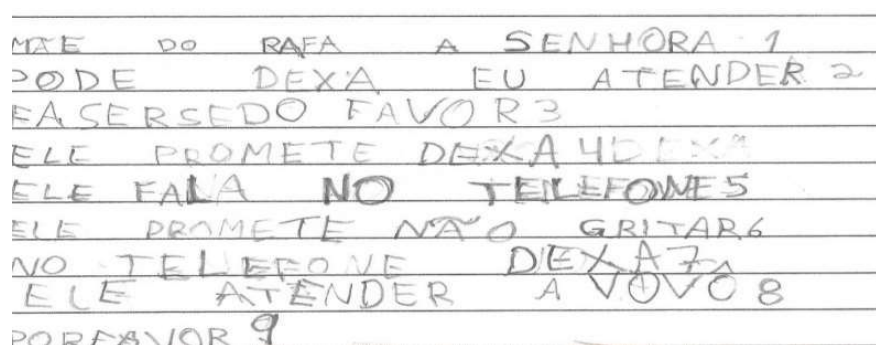 MÃE DO RAFA A SENHORA 1
PODE DEXA EU ATENDER 2
FASERSEDO FAVOR 3
ELE PROMETE DEXA 4 DEXA
ELE FALA NO TELEFONE 5
ELE PROMETE NÃO GRITAR 6
NO TELEFONE DEXA 7
ELE ATENDER A VOVÓ 8
PORFAVOR 9